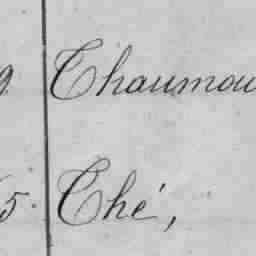 9 Chaumou
5. Ché,